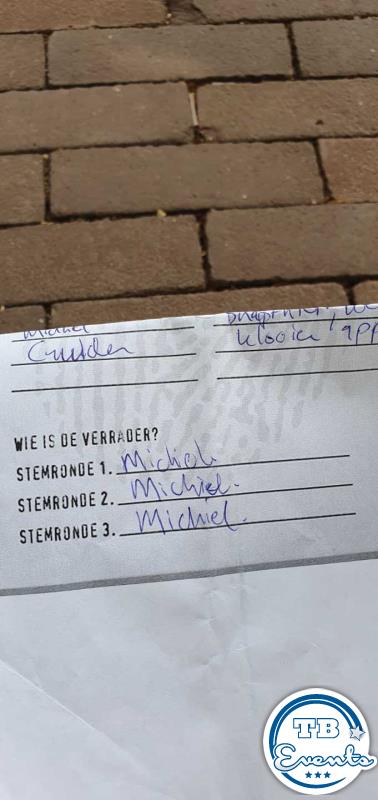 Michiel
Cruiden klooien, app
WIE IS DE VERRADER?
STEMRONDE 1. Michiel
STEMRONDE 2. Michiel.
STEMRONDE 3. Michiel.
TB
Events